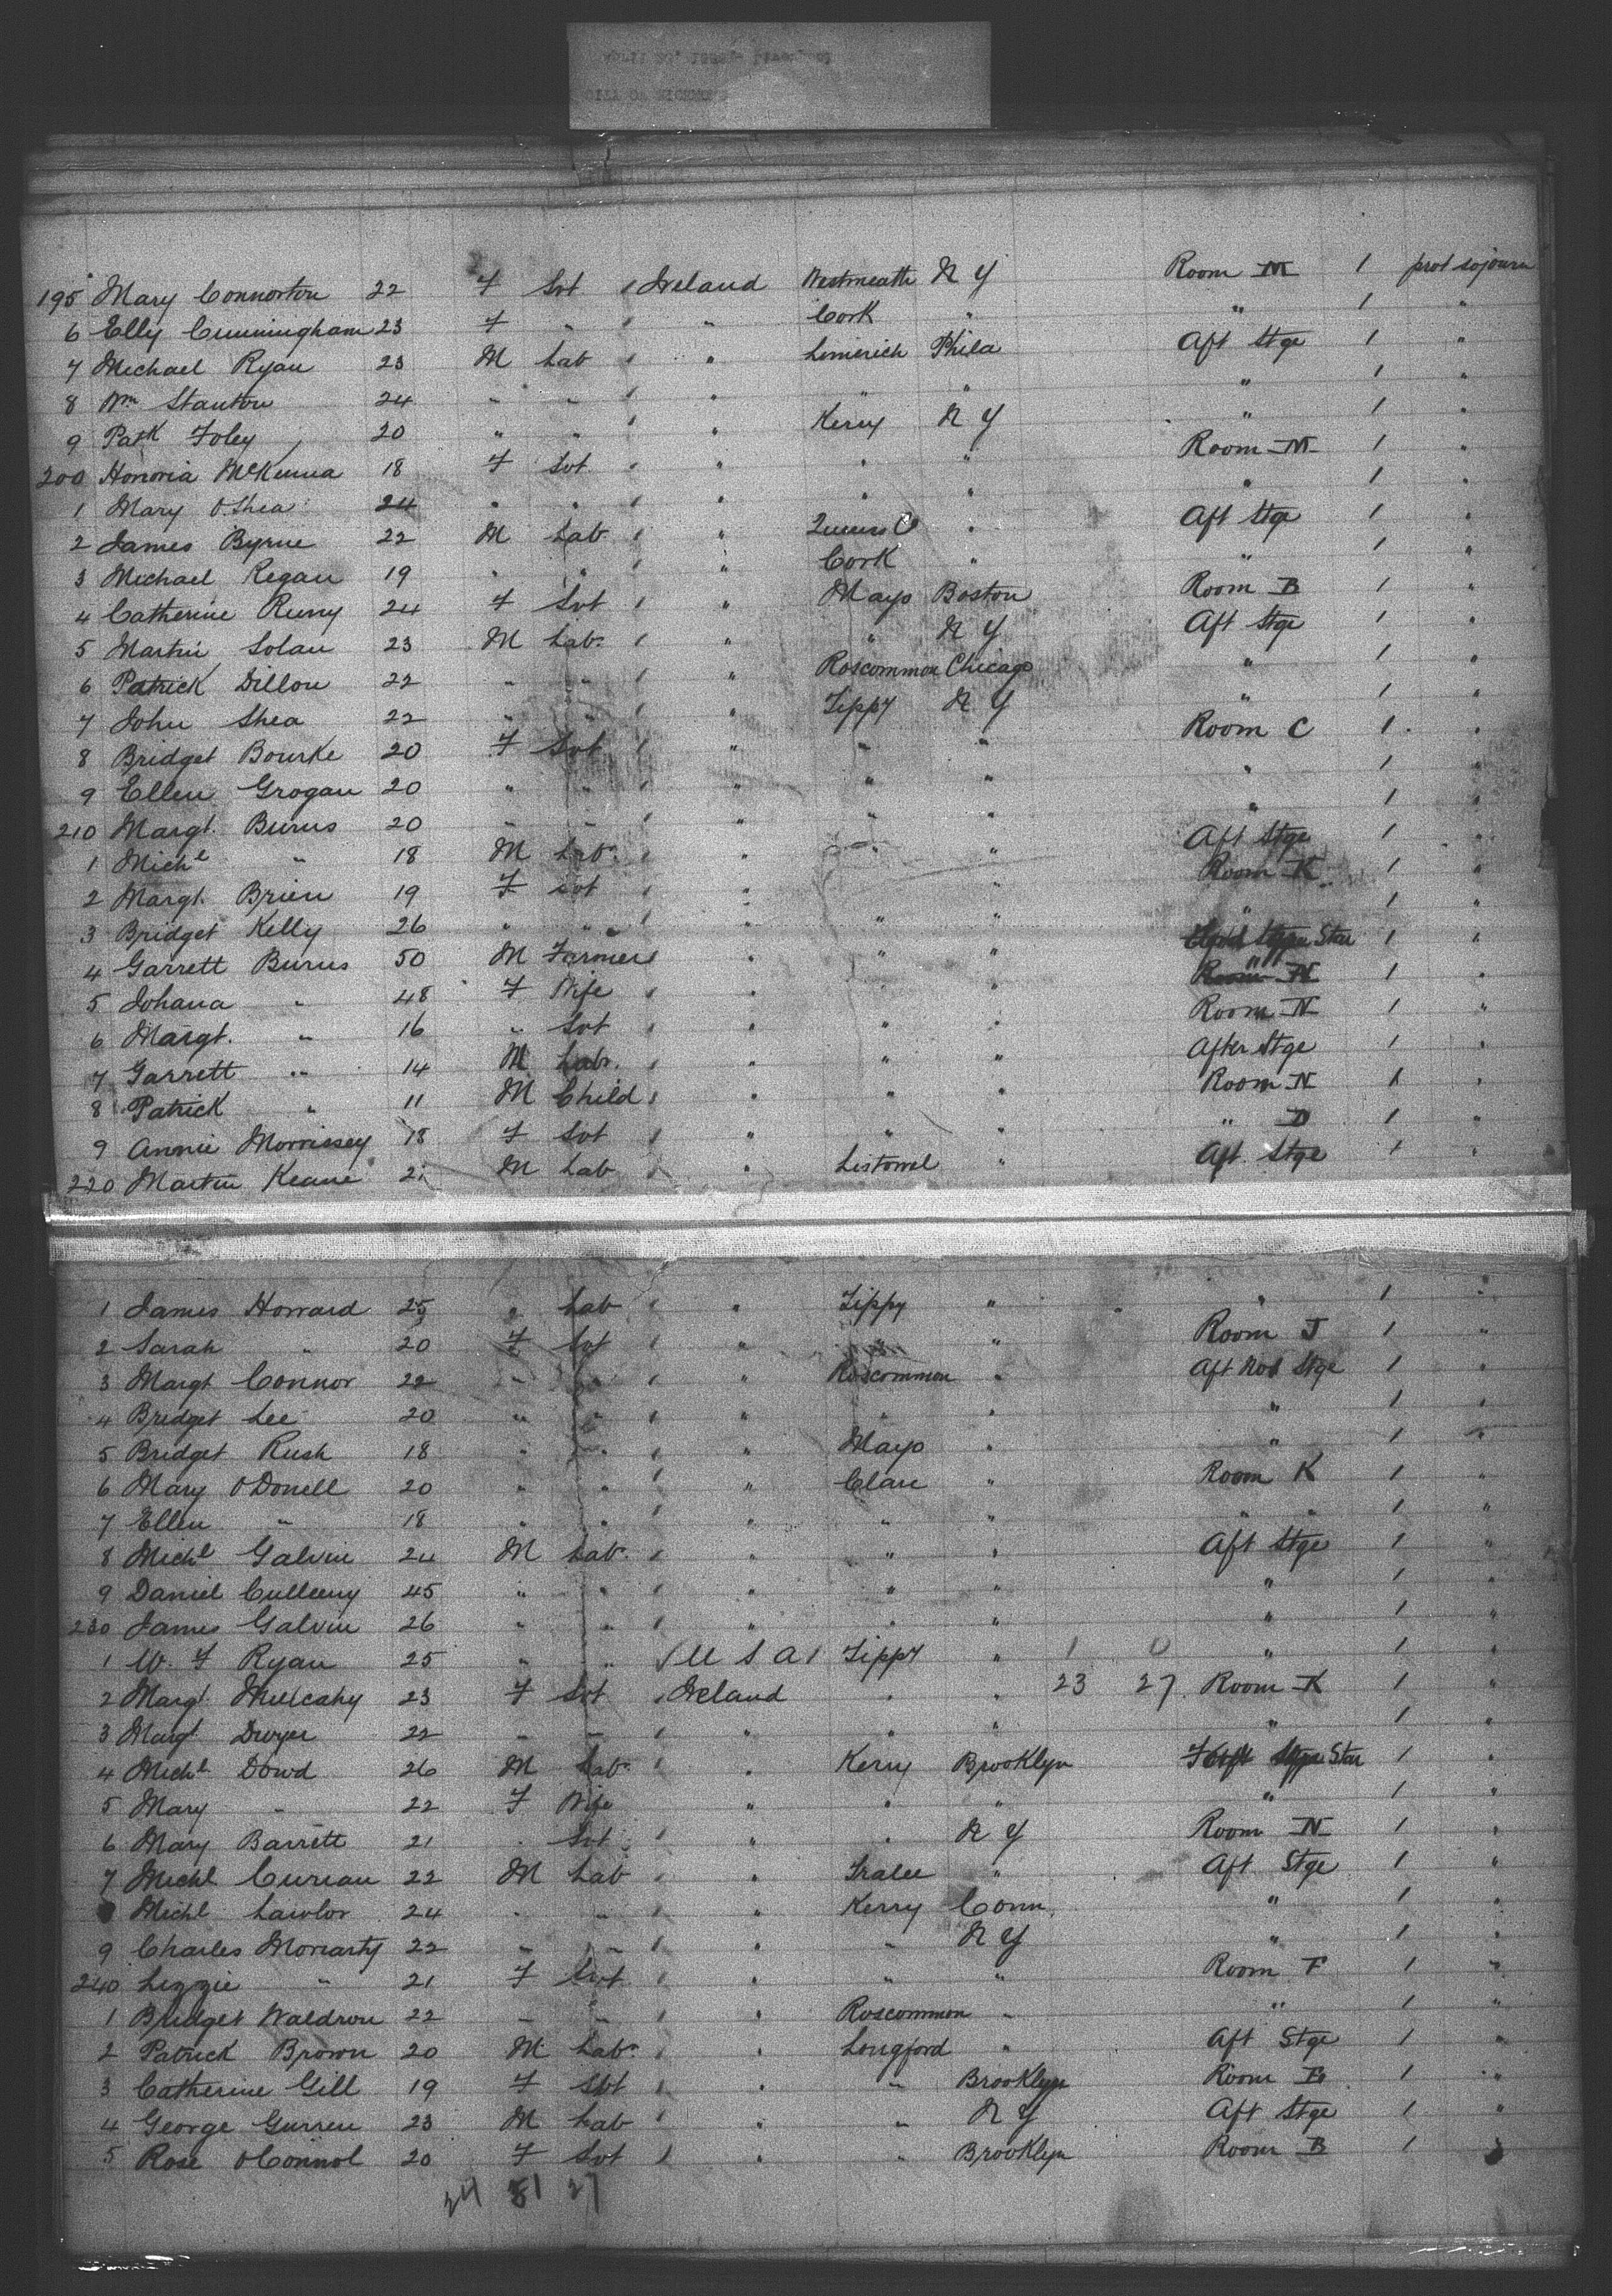 195 Mary Connorton 22 F Svt / Ireland Westmeath N Y Room M 1 prot sojourn
6 Elly Cunningham 23 F " / " Cork " " 1 "
7 Michael Ryan 23 M Lab / " Limerick Phila Aft Stge 1 "
8 Wm Stanton 24 " " / " " " " 1 "
9 Patk Foley 20 " " / " Kerry N Y " 1 "
200 Honoria McKenna 18 F Svt / " " " Room M 1 "
1 Mary O'Shea 24 " " / " " " " 1 "
2 James Byrne 22 M Lab / " Queens Co " Aft Stge 1 "
3 Michael Regan 19 " " / " Cork " " 1 "
4 Catherine Runy 24 F Svt / " Mayo Boston Room B 1 "
5 Martin Solan 23 M Lab / " " N Y Aft Stge 1 "
6 Patrick Dillon 22 " " / " Roscommon Chicago " 1 "
7 John Shea 22 " " / " Tippy N Y " 1 "
8 Bridget Bourke 20 F Svt / " " " Room C 1 "
9 Ellen Grogan 20 " " / " " " " 1 "
210 Margt. Burns 20 " " / " " " " 1 "
1 Michl " 18 M Lab / " " " Aft Stge 1 "
2 Margt. Brien 19 F Svt / " " Room K 1 "
3 Bridget Kelly 26 " " / " " " " 1 "
4 Garrett Burns 50 M Farmer / " " " Star 1 "
5 Johana " 48 F Wife / " " " 1 "
6 Margt. " 16 " Svt / " " " Room N 1 "
7 Garrett " 14 M Lab. / " " " After Stge 1 "
8 Patrick " 11 M Child / " " " Room N 1 "
9 Annie Morrissey 18 F Svt / " " " " D 1 "
220 Martin Keane M Lab / " Listowel " Aft. Stge 1 "
1 James Howard 25 " Lab / " Tippy " " 1 "
2 Sarah " 20 F Svt / " " " Room J 1 "
3 Margt Connor 22 " " / " Roscommon " Aft Stge 1 "
4 Bridget Lee 20 " " / " " " " 1 "
5 Bridget Rush 18 " " / " Mayo " " 1 "
6 Mary O Donell 20 " " / " Clare " Room K 1 "
7 Ellen " 18 " " / " " " " " 1 "
8 Michl Galvin 24 M Lab. / " " " Aft Stge 1 "
9 Daniel Culleeny 45 " " / " " " " 1 "
230 James Galvin 26 " " / " " " " 1 "
1 W. F Ryan 25 " " / U S A / Tippy " 1 0 " 1 "
2 Margt. Mulcahy 23 F Svt / Ireland " " 23 27 Room K 1 "
3 Margt. Dwyer 22 " " / " " " " 1 "
4 Michl Dowd 26 M Lab. / " Kerry Brooklyn Star 1 "
5 Mary " 22 F Wife " " " " 1 "
6 Mary Barrett 21 " Svt / " " N Y Room N 1 "
7 Michl Curran 22 M Lab / " Tralee " Aft Stge 1 "
Michl Lawlor 24 " " / " Kerry Conn. " 1 "
9 Charles Moriarty 22 " " / " " N Y " 1 "
240 Lizzie " 21 F Svt / " " " Room F 1 "
1 Bridget Waldron 22 " " / " Roscommon " " 1 "
2 Patrick Brown 20 M Lab. / " Longford " Aft Stge 1 "
3 Catherine Gill 19 F Svt / " " Brooklyn Room 1 "
4 George Gurren 23 M Lab / " " N Y Aft Stge 1 "
5 Rose O Connol 20 F Svt / " " Brooklyn Room B 1
24 81 27